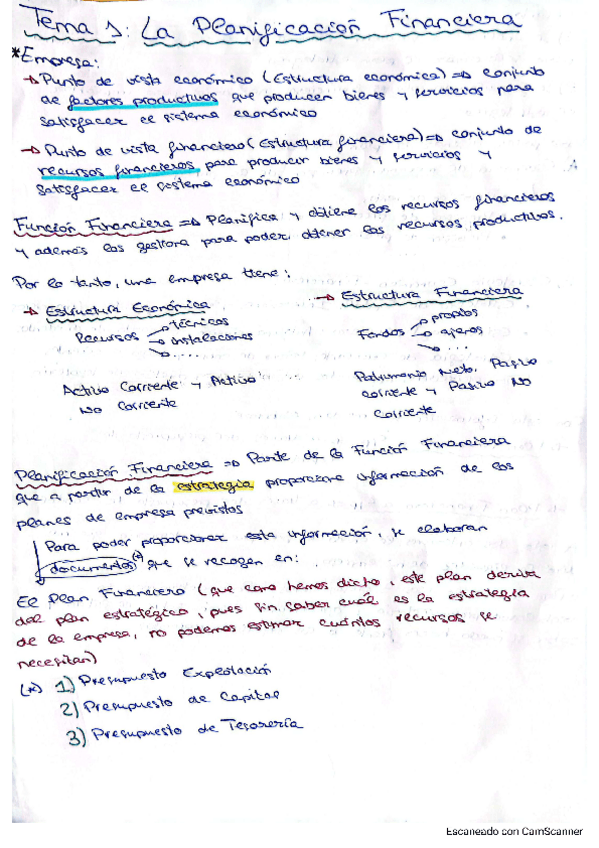 Tema 1: La Planificación Financiera
*Empresa:
→ Punto de vista económico (Estructura económica) ⇒ conjunto
de factores productivos que producen bienes y servicios para
satisfacer el sistema económico
→ Punto de vista financiero (Estructura financiera) ⇒ conjunto de
recursos financieros para producir bienes y servicios y
satisfacer el sistema económico
Función Financiera ⇒ Planifica y obtiene los recursos financieros
y además los gestiona para poder obtener los recursos productivos.
Por lo tanto, una empresa tiene:
→ Estructura Económica
Recursos → técnicos
→ instalaciones
→ ...
Activo Corriente y Activo
No Corriente
→ Estructura Financiera
Fondos → propios
→ ajenos
→ ...
Patrimonio Neto, Pasivo
corriente y Pasivo No
Corriente
Planificación Financiera ⇒ Parte de la Función Financiera
que a partir de la estrategia proporciona información de los
planes de empresa previstos
Para poder proporcionar esta información, se elaboran
documentos(*) que se recogen en:
El Plan Financiero (que como hemos dicho, este plan deriva
del plan estratégico, pues sin saber cuál es la estrategia
de la empresa, no podemos estimar cuántos recursos se
necesitan)
(*) 1) Presupuesto Explotación
2) Presupuesto de Capital
3) Presupuesto de Tesorería
Escaneado con CamScanner